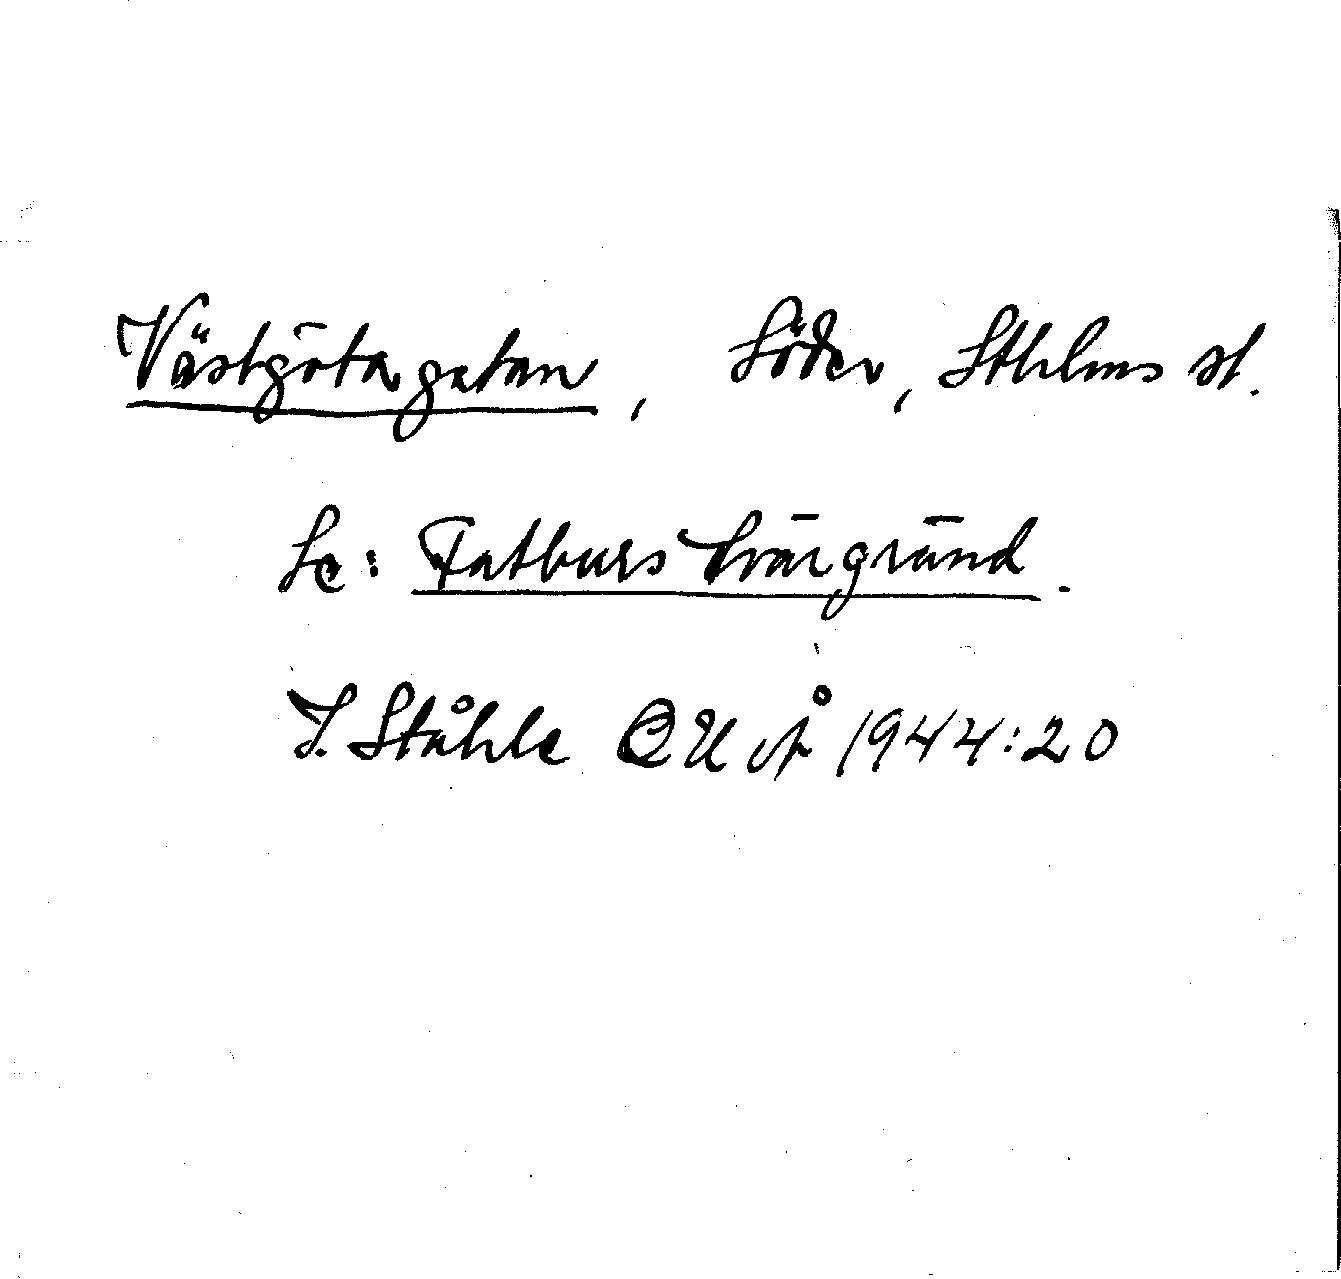 Västgötagatan, Söder, Sthlms st.
Se: Fatburs tvärgränd.
I. Ståhle UUÅ 1944:20